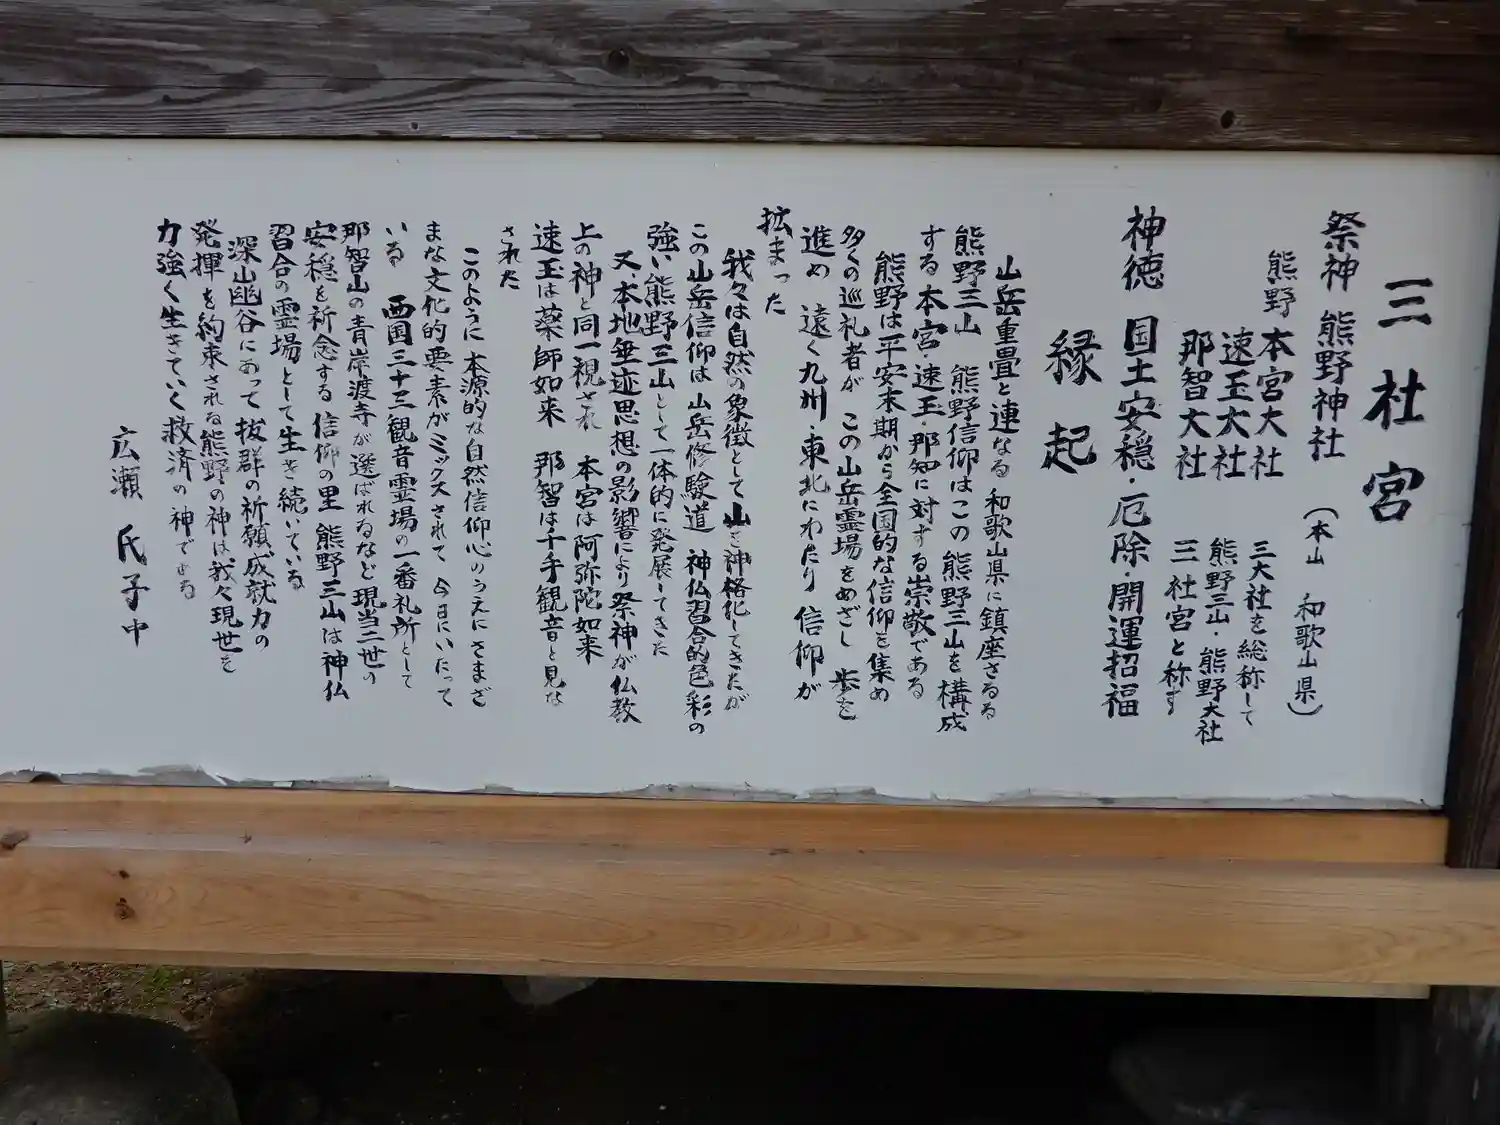 三社宮
祭神 熊野神社 (本山 和歌山県)
熊野 本宮大社
速玉大社
那智大社
三大社を総称して
熊野三山・熊野大社
三社宮と称す
神徳 国土安穏・厄除・開運招福
縁起
山岳重畳と連なる 和歌山県に鎮座さるる
熊野三山 熊野信仰はこの熊野三山を構成
する本宮・速玉・那知に対する崇敬である
熊野は平安末期から全国的な信仰を集め
多くの巡礼者が この山岳霊場をめざし 歩を
進め 遠く九州・東北にわたり 信仰が
拡まった
我々は自然の象徴として山を神格化してきたが
この山岳信仰は山岳修験道 神仏習合的色彩の
強い熊野三山として一体的に発展してきた
又、本地垂迹思想の影響により祭神が仏教
上の神と同一視され 本宮は阿弥陀如来
速玉は薬師如来 那智は千手観音と見な
された
このように 本源的な自然信仰心のうえにさまざ
まな文化的要素がミックスされて 今日にいたって
いる 西国三十三観音霊場の一番礼所として
那智山の青岸渡寺が選ばれるなど現当二世の
安穏を祈念する 信仰の里 熊野三山は神仏
習合の霊場として生き続いている
深山幽谷にあって抜群の祈願成就力の
発揮を約束される熊野の神は我々現世を
力強く生きていく救済の神である
広瀬 氏子中